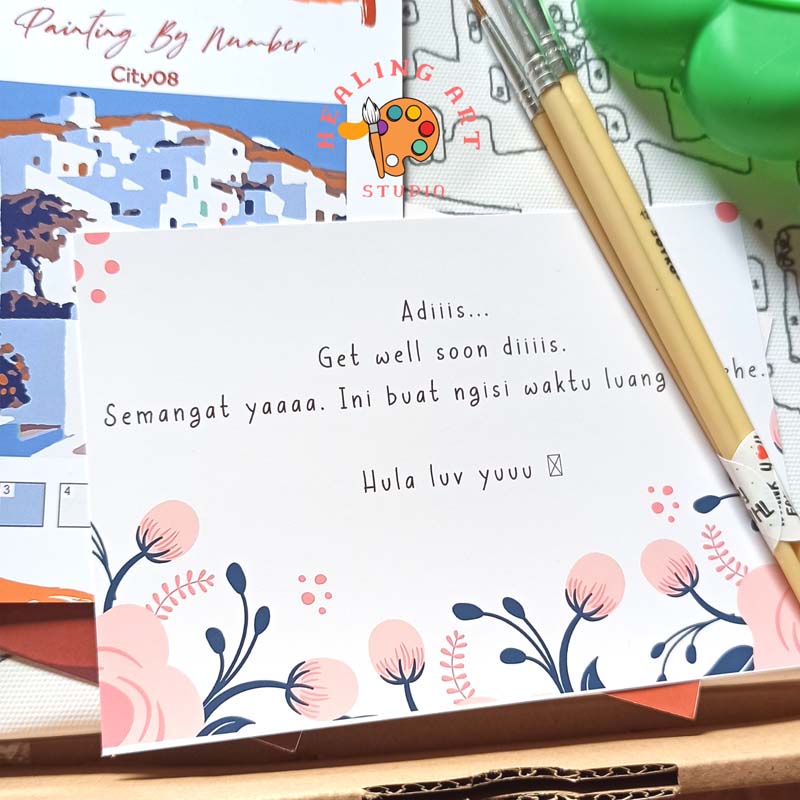 Painting By Number
City08
HEALING ART
STUDIO
Adiiis...
Get well soon diiiis.
Semangat yaaaa. Ini buat ngisi waktu luang he.
Hula luv yuuu
3
4